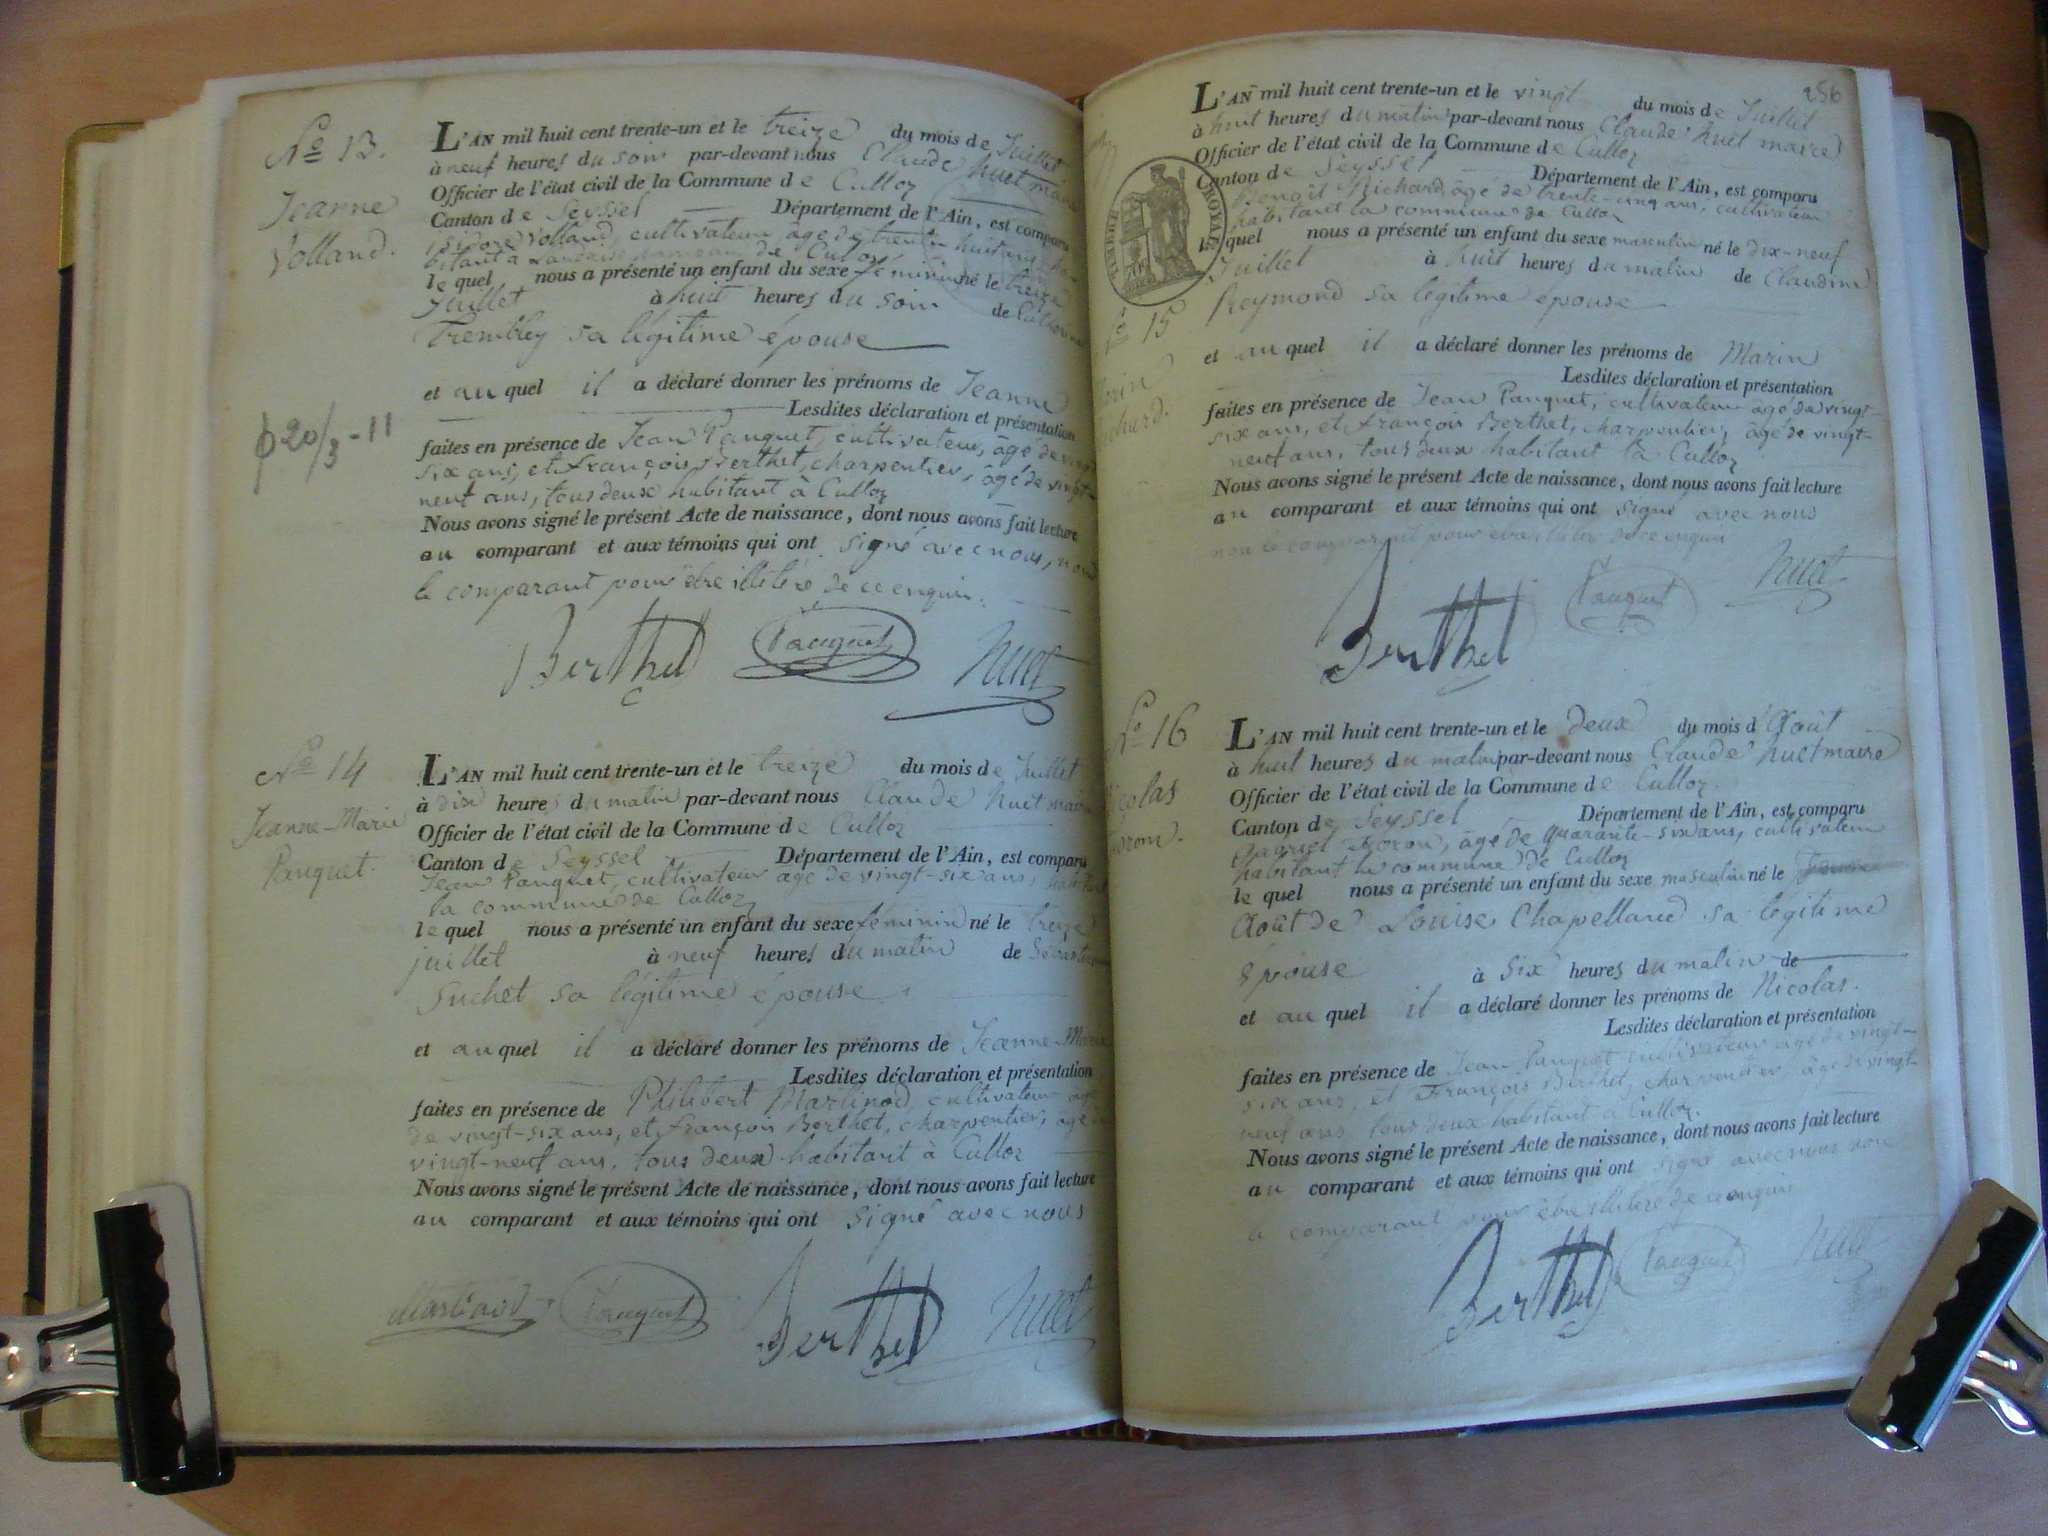 Nº 13.
Jeanne
Volland.
φ 20/3-11
L'AN mil huit cent trente-un et le treize du mois de Juillet
à neuf heures du soir par-devant nous Claude huet maire
Officier de l'état civil de la Commune de Culloz
Canton de Seyssel Département de l'Ain, est comparu
isidore Volland, cultivateur âgé de trente huit ans, ha-
bitant à de Culoz
lequel nous a présenté un enfant du sexe féminin né le treize
Juillet à huit heures du soir de
Trembley sa légitime épouse
et au quel il a déclaré donner les prénoms de Jeanne
Lesdites déclaration et présentation
faites en présence de Jean Pauquet, cultivateur, âgé de vingt
six ans, et françois Berthet, charpentier, âgé de vingt-
neuf ans, tous deux habitant à Culloz
Nous avons signé le présent Acte de naissance, dont nous avons fait lecture
au comparant et aux témoins qui ont signé avec nous, non
le comparant pour être illétéré de ce enquis.
Berthet Pauquet huet
Nº 14
Jeanne-Marie
Pauquet.
L'AN mil huit cent trente-un et le treize du mois de Juillet
à dix heures du matin par-devant nous Claude huet maire
Officier de l'état civil de la Commune de Culloz
Canton de Seyssel Département de l'Ain, est comparu
Jean Pauquet, cultivateur âgé de vingt-six ans, habitant
la commune de Culloz
lequel nous a présenté un enfant du sexe féminin né le treize
juillet à neuf heures du matin de
Suchet sa légitime épouse
et au quel il a déclaré donner les prénoms de Jeanne Marie
Lesdites déclaration et présentation
faites en présence de Philibert Martinod, cultivateur âgé
de vingt-six ans, et françois Berthet, charpentier, âgé de
vingt-neuf ans, tous deux habitant à Culloz
Nous avons signé le présent Acte de naissance, dont nous avons fait lecture
au comparant et aux témoins qui ont signé avec nous
Martinod Pauquet Berthet huet
256
TIMBRE ROYAL
Nº 15
L'AN mil huit cent trente-un et le vingt du mois de Juillet
à huit heures du matin par-devant nous Claude huet maire
Officier de l'état civil de la Commune de Culloz
Canton de Seyssel Département de l'Ain, est comparu
Benoît Richard, âgé de trente-cinq ans, cultivateur
habitant la commune de Culloz
lequel nous a présenté un enfant du sexe masculin né le dix-neuf
Juillet à huit heures du matin de Claudine
Reymond sa légitime épouse
et au quel il a déclaré donner les prénoms de Marin
Lesdites déclaration et présentation
faites en présence de Jean Pauquet, cultivateur âgé de vingt-
six ans, et françois Berthet, charpentier, âgé de vingt-
neuf ans, tous deux habitant à Culloz
Nous avons signé le présent Acte de naissance, dont nous avons fait lecture
au comparant et aux témoins qui ont signé avec nous
non le comparant pour être illétéré de ce enquis
Berthet Pauquet huet
Nº 16
L'AN mil huit cent trente-un et le deux du mois d'Août
à huit heures du matin par-devant nous Claude huet maire
Officier de l'état civil de la Commune de Culloz
Canton de Seyssel Département de l'Ain, est comparu
Gabriel âgé de quarante-six ans, cultivateur
habitant la commune de Culloz
lequel nous a présenté un enfant du sexe masculin né le
Août de Louise Chapelland sa légitime
épouse à six heures du matin de
et au quel il a déclaré donner les prénoms de Nicolas.
Lesdites déclaration et présentation
faites en présence de Jean Pauquet cultivateur âgé de vingt-
six ans, et François Berthet, charpentier, âgé de vingt-
neuf ans tous deux habitant à Culloz.
Nous avons signé le présent Acte de naissance, dont nous avons fait lecture
au comparant et aux témoins qui ont signé avec nous non
le comparant pour être illétéré de ce enquis
Berthet Pauquet huet